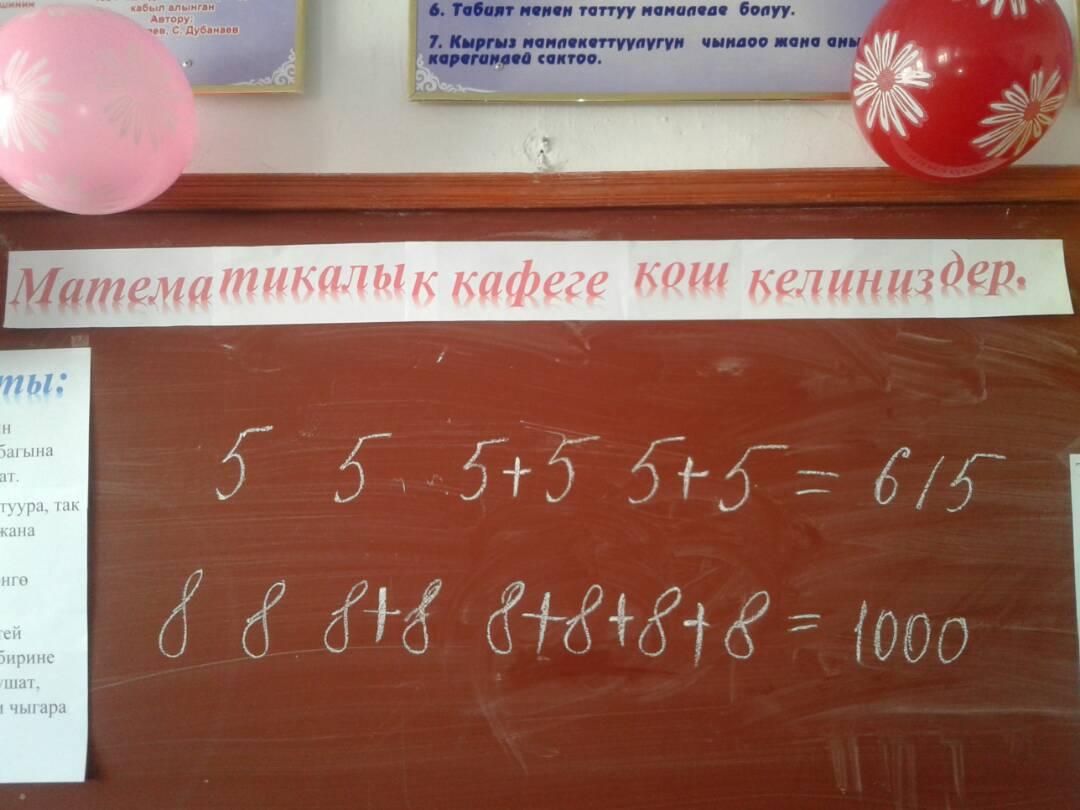 кабыл алынган
Автору:
С. Дубанаев
6. Табият менен таттуу мамиледе болуу.
7. Кыргыз мамлекеттүүлүгүн чыңдоо жана аны
карегиндей сактоо.
Математикалык кафеге кош келиниздер.
ты:
багына
ат.
туура, так
жана
өнгө
тей
бирине
ушат,
и чыгара
5 5 5+5 5+5 = 615
8 8 8+8 8+8+8+8 = 1000